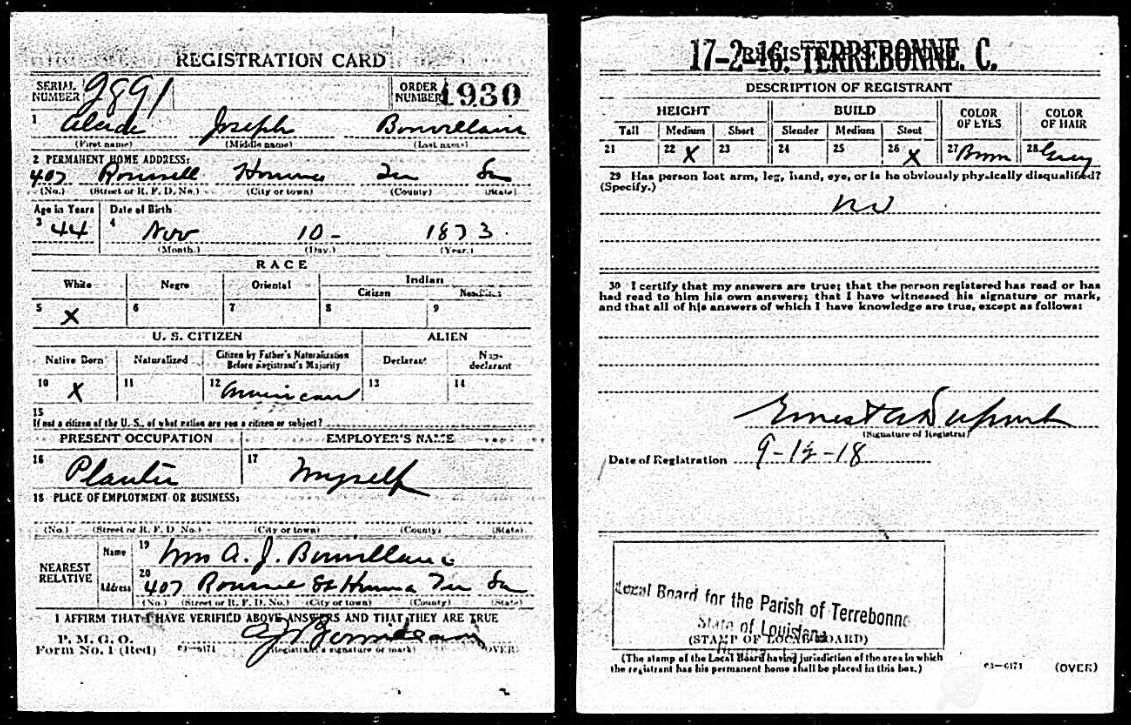 REGISTRATION CARD
SERIAL NUMBER 2891 ORDER NUMBER 1930
1 Alcide Joseph Bonvillain
(First name) (Middle name) (Last name)
2 PERMANENT HOME ADDRESS:
407 Roussell Houma Ter La
(No.) (Street or R. F. D. No.) (City or town) (County) (State)
Age in Years Date of Birth
3 44 4 Nov 10- 1873.
(Month.) (Day.) (Year.)
RACE
White Negro Oriental Indian
Citizen Noncitizen
5 X 6 7 8 9
U. S. CITIZEN ALIEN
Native Born Naturalized Citizen by Father's Naturalization Before Registrant's Majority Declarant Non-declarant
10 X 11 12 American 13 14
15
If not a citizen of the U. S., of what nation are you a citizen or subject?
PRESENT OCCUPATION EMPLOYER'S NAME
16 Planter 17 Myself
18 PLACE OF EMPLOYMENT OR BUSINESS:
(No.) (Street or R. F. D. No.) (City or town) (County) (State)
NEAREST RELATIVE Name 19 Mrs A. J. Bonvillain
Address 20 407 Roussell St Houma Ter La
(No.) (Street or R. F. D. No.) (City or town) (County) (State)
I AFFIRM THAT I HAVE VERIFIED ABOVE ANSWERS AND THAT THEY ARE TRUE
P. M. G. O.
Form No. 1 (Red) 03—6171 A J Bonvillain (OVER)
(Registrant's signature or mark)
17-2-16. TERREBONNE. C.
DESCRIPTION OF REGISTRANT
HEIGHT BUILD COLOR OF EYES COLOR OF HAIR
Tall Medium Short Slender Medium Stout
21 22 X 23 24 25 26 X 27 Brown 28 Grey
29 Has person lost arm, leg, hand, eye, or is he obviously physically disqualified?
(Specify.)
no
30 I certify that my answers are true; that the person registered has read or has
had read to him his own answers; that I have witnessed his signature or mark,
and that all of his answers of which I have knowledge are true, except as follows:
Ernest A Dupont
(Signature of Registrar)
Date of Registration 9-12-18
Local Board for the Parish of Terrebonne
State of Louisiana
(STAMP OF LOCAL BOARD)
(The stamp of the Local Board having jurisdiction of the area in which
the registrant has his permanent home shall be placed in this box.)
03—6171 (OVER)